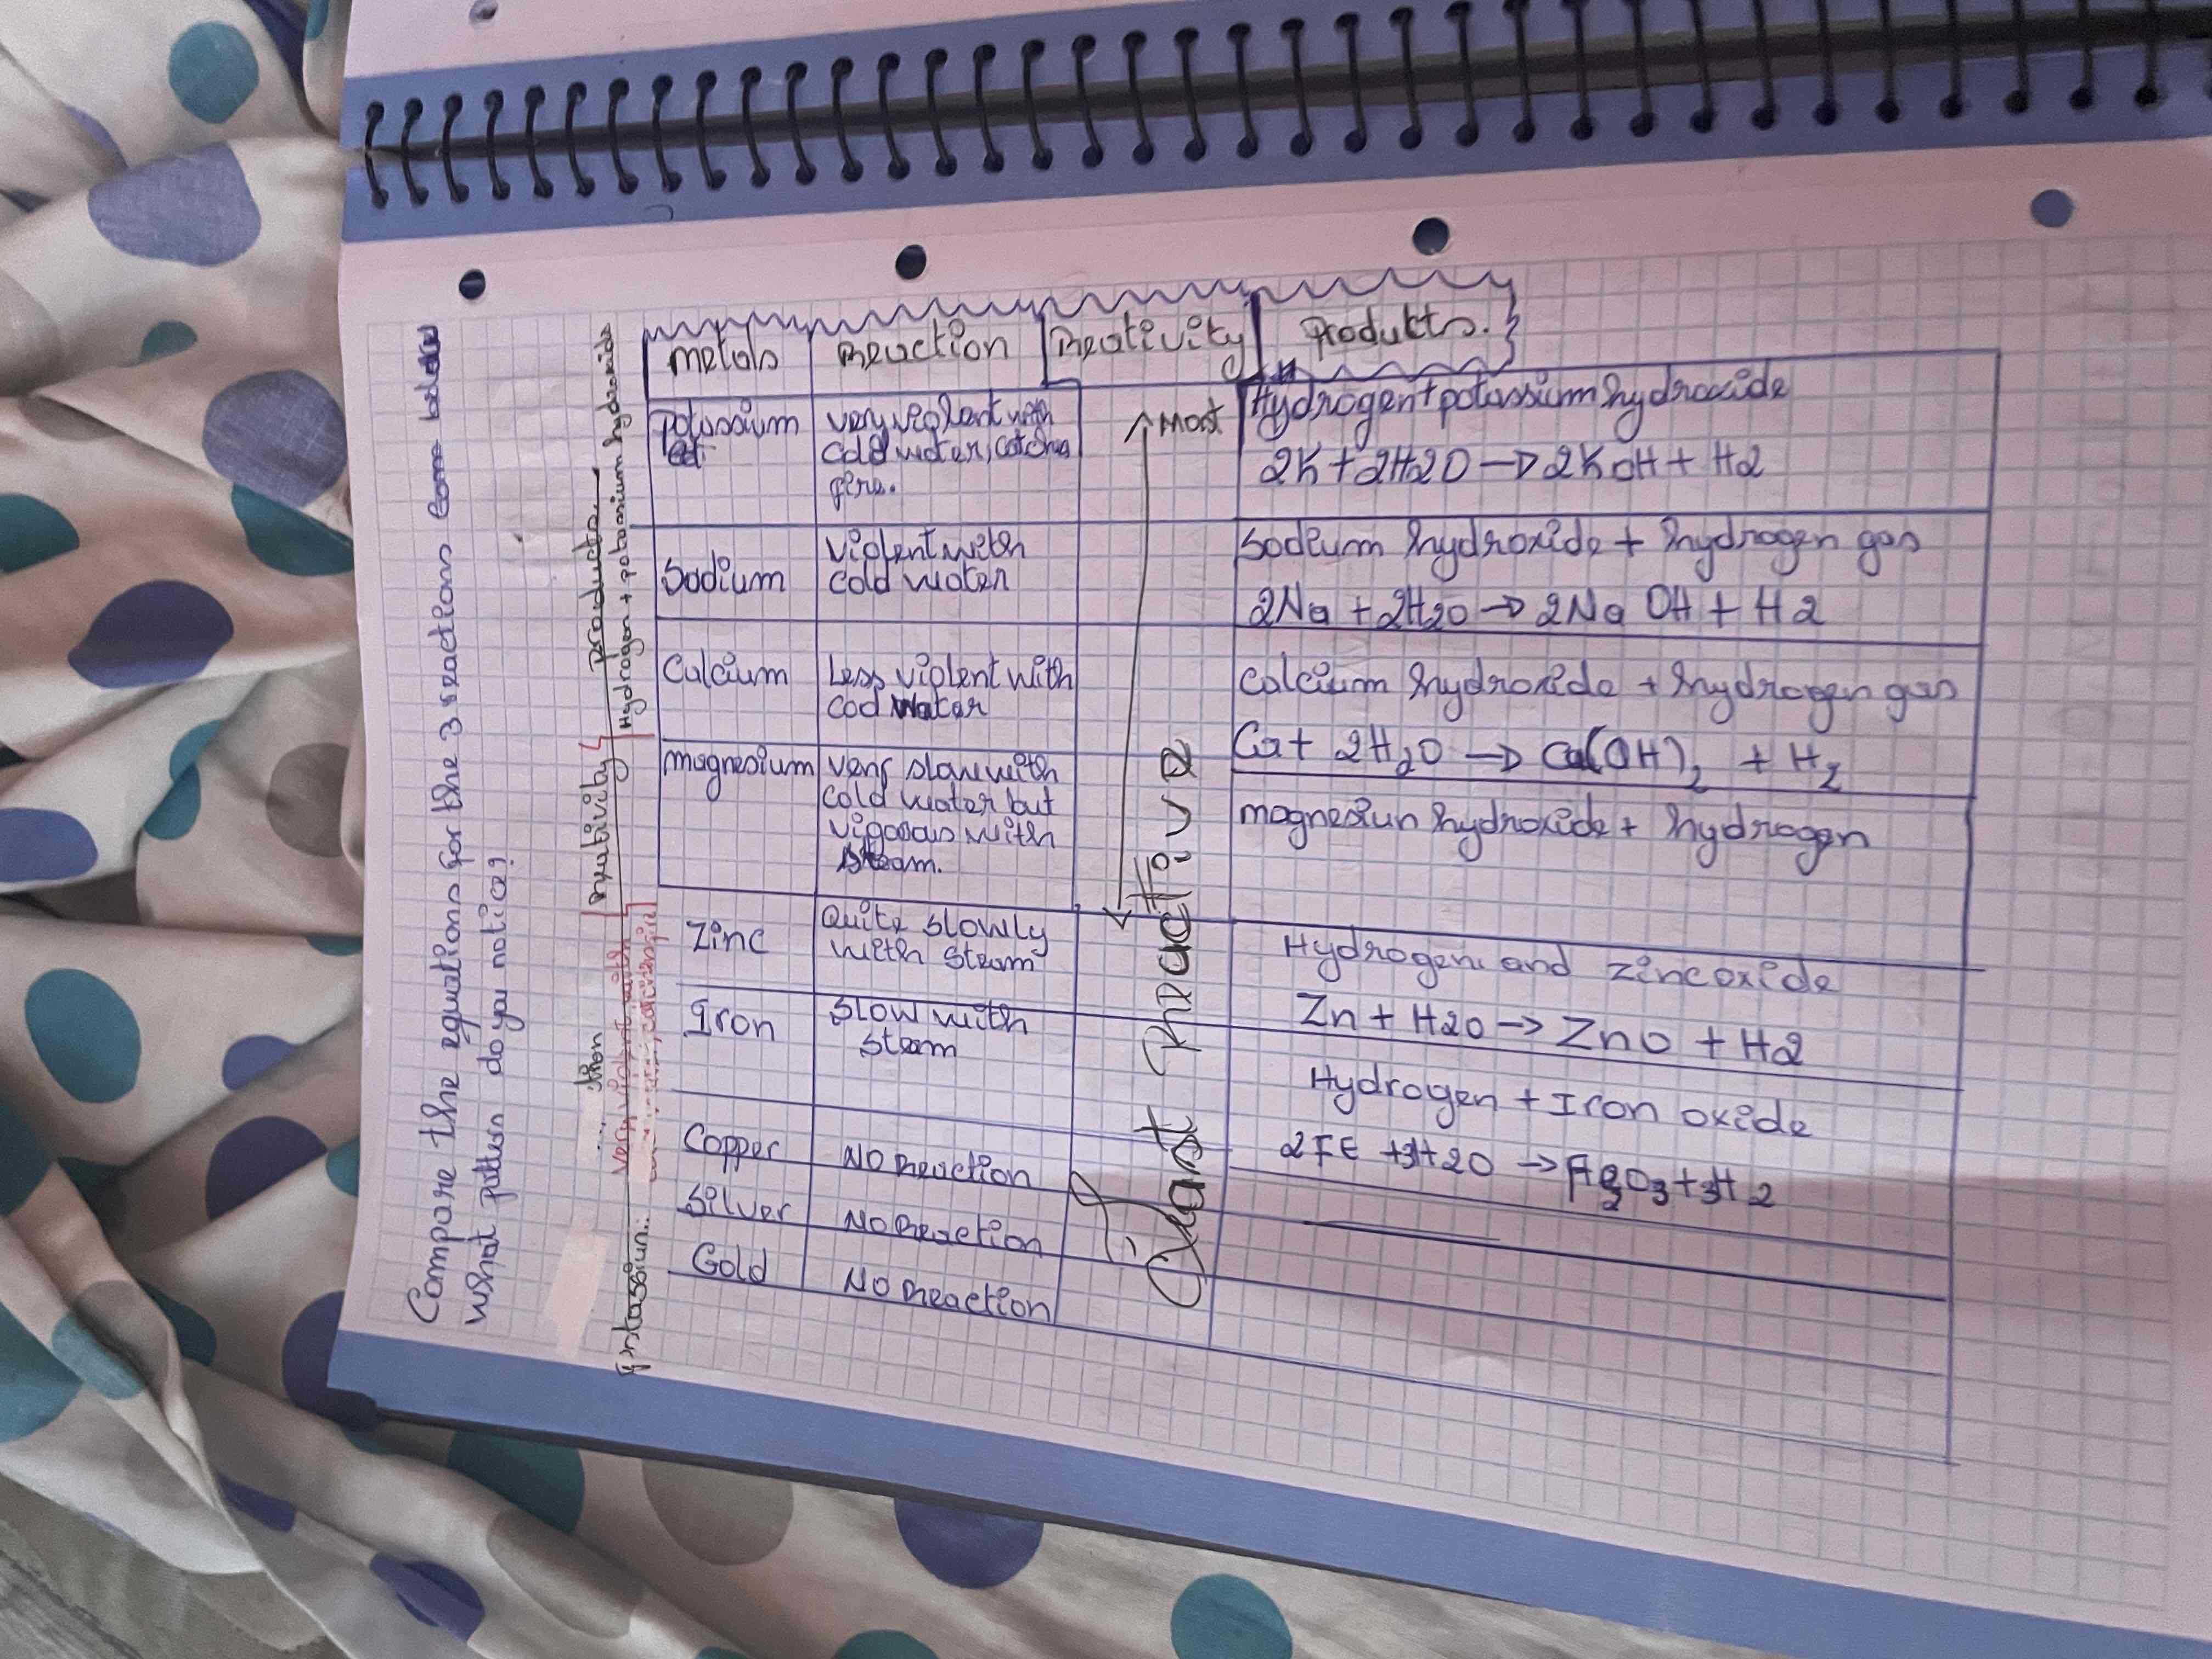 Compare the equations for the 3 reactions below
What pattern do you notice?
products
Hydrogen + potassium hydroxide
tion
very violent with
metals Reaction Reativity Produkts.
potassium very violent with cold water, catches fire.
↑ Most
Hydrogen + potassium hydroxide
2K + 2H2O → 2KOH + H2
Sodium violent with cold water
Sodium hydroxide + hydrogen gas
2Na + 2H2O → 2NaOH + H2
Calcium Less violent with cod water
calcium hydroxide + hydrogen gas
Ca + 2H₂O → Ca(OH)₂ + H₂
magnesium very slow with cold water but vigorous with steam.
magnesiun hydroxide + hydrogen
Zinc Quite slowly with steam
Hydrogen and zinc oxide
Zn + H2O → ZnO + H2
Iron slow with steam
Hydrogen + Iron oxide
2FE + 3H2O → Fe₂O3 + 3H2
Copper NO Reaction
Silver NO Reaction
Gold NO Reaction
Least Reactive